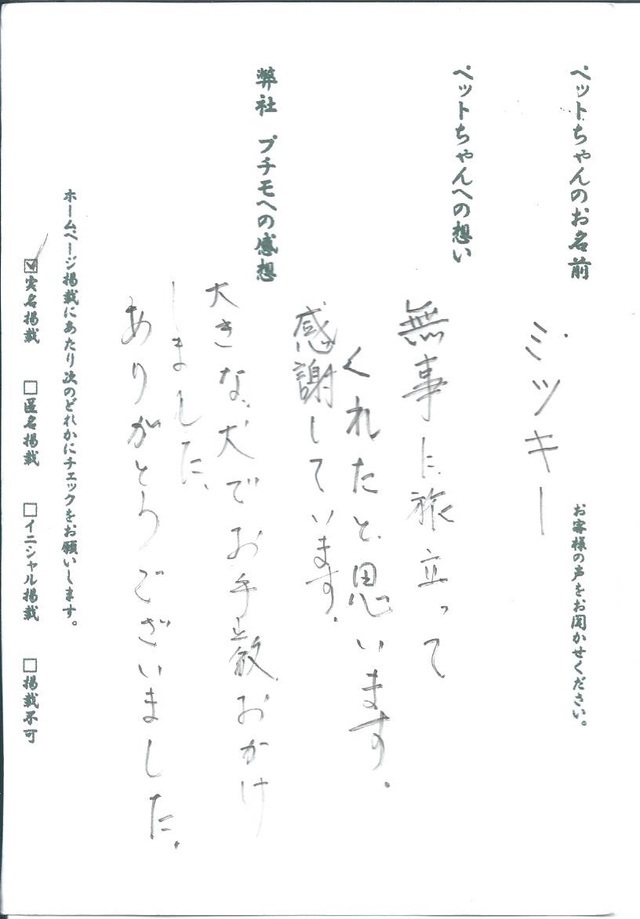 お客様の声をお聞かせください。
ペットちゃんのお名前
ミッキー
ペットちゃんへの想い
無事に旅立って
くれたと思います。
感謝しています。
弊社 プチモへの感想
大きな犬でお手数おかけ
しました。
ありがとうございました。
ホームページ掲載にあたり次のどれかにチェックをお願いします。
☑実名掲載 □匿名掲載 □イニシャル掲載 □掲載不可